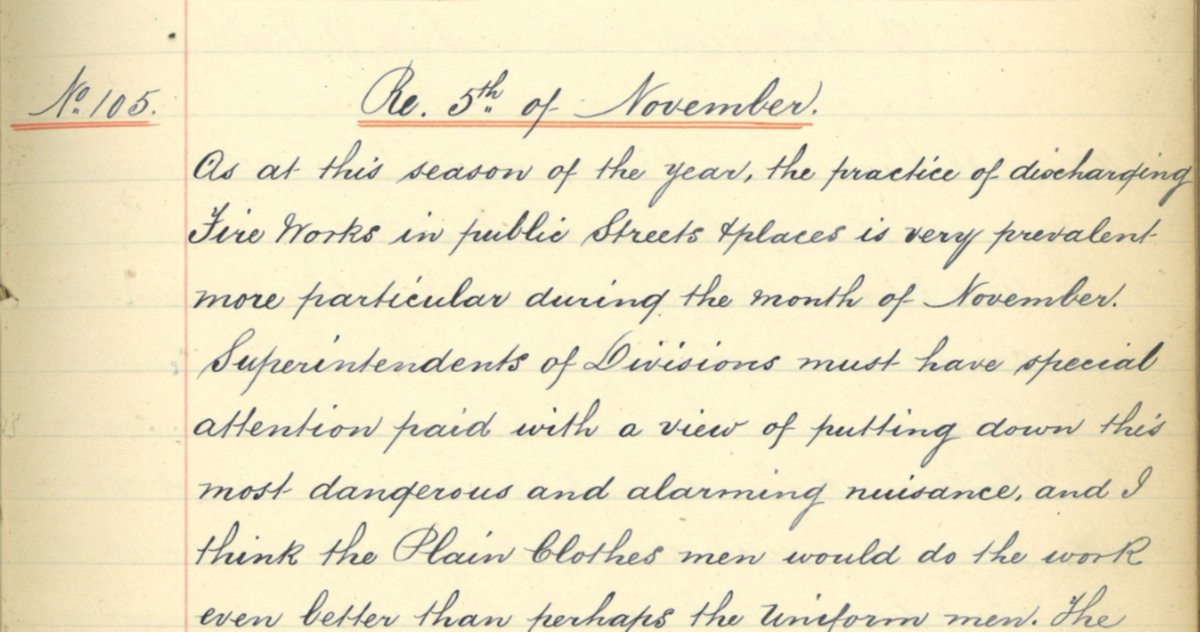 No. 105.
Re. 5th of November.
As at this season of the year, the practice of discharging
Fire Works in public Streets & places is very prevalent
more particular during the month of November.
Superintendents of Divisions must have special
attention paid with a view of putting down this
most dangerous and alarming nuisance, and I
think the Plain Clothes men would do the work
even better than perhaps the Uniform men. The